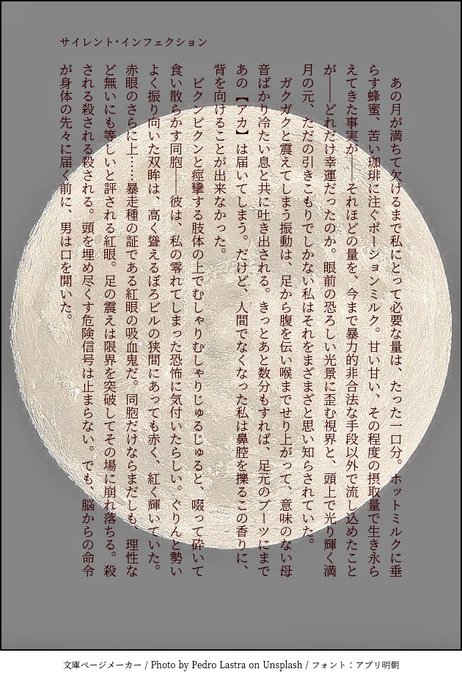 サイレント・インフェクション
　あの月が満ちて欠けるまで私にとって必要な量は、たった一口分。ホットミルクに垂
らす蜂蜜、苦い珈琲に注ぐポーションミルク。甘い甘い、その程度の摂取量で生き永ら
えてきた事実が――それほどの量を、今まで暴力的非合法な手段以外で流し込めたこと
が――どれだけ幸運だったのか。眼前の恐ろしい光景に歪む視界と、頭上で光り輝く満
月の元、ただの引きこもりでしかない私はそれをまざまざと思い知らされていた。
　ガクガクと震えてしまう振動は、足から腹を伝い喉までせり上がって、意味のない母
音ばかり冷たい息と共に吐き出される。きっとあと数分もすれば、足元のブーツにまで
あの【アカ】は届いてしまう。だけど、人間でなくなった私は鼻腔を擽るこの香りに、
背を向けることが出来なかった。
　ビクンビクンと痙攣する肢体の上でむしゃりむしゃりじゅるじゅると、啜って砕いて
食い散らかす同胞――彼は、私の零れてしまった恐怖に気付いたらしい。ぐりんと勢い
よく振り向いた双眸は、高く聳えるぼろビルの狭間にあっても赤く、紅く輝いていた。
赤眼のさらに上……暴走種の証である紅眼の吸血鬼だ。同胞だけならまだしも、理性な
ど無いにも等しいと評される紅眼。足の震えは限界を突破してその場に崩れ落ちる。殺
される殺される殺される。頭を埋め尽くす危険信号は止まらない。でも、脳からの命令
が身体の先々に届く前に、男は口を開いた。
文庫ページメーカー / Photo by Pedro Lastra on Unsplash / フォント：アプリ明朝